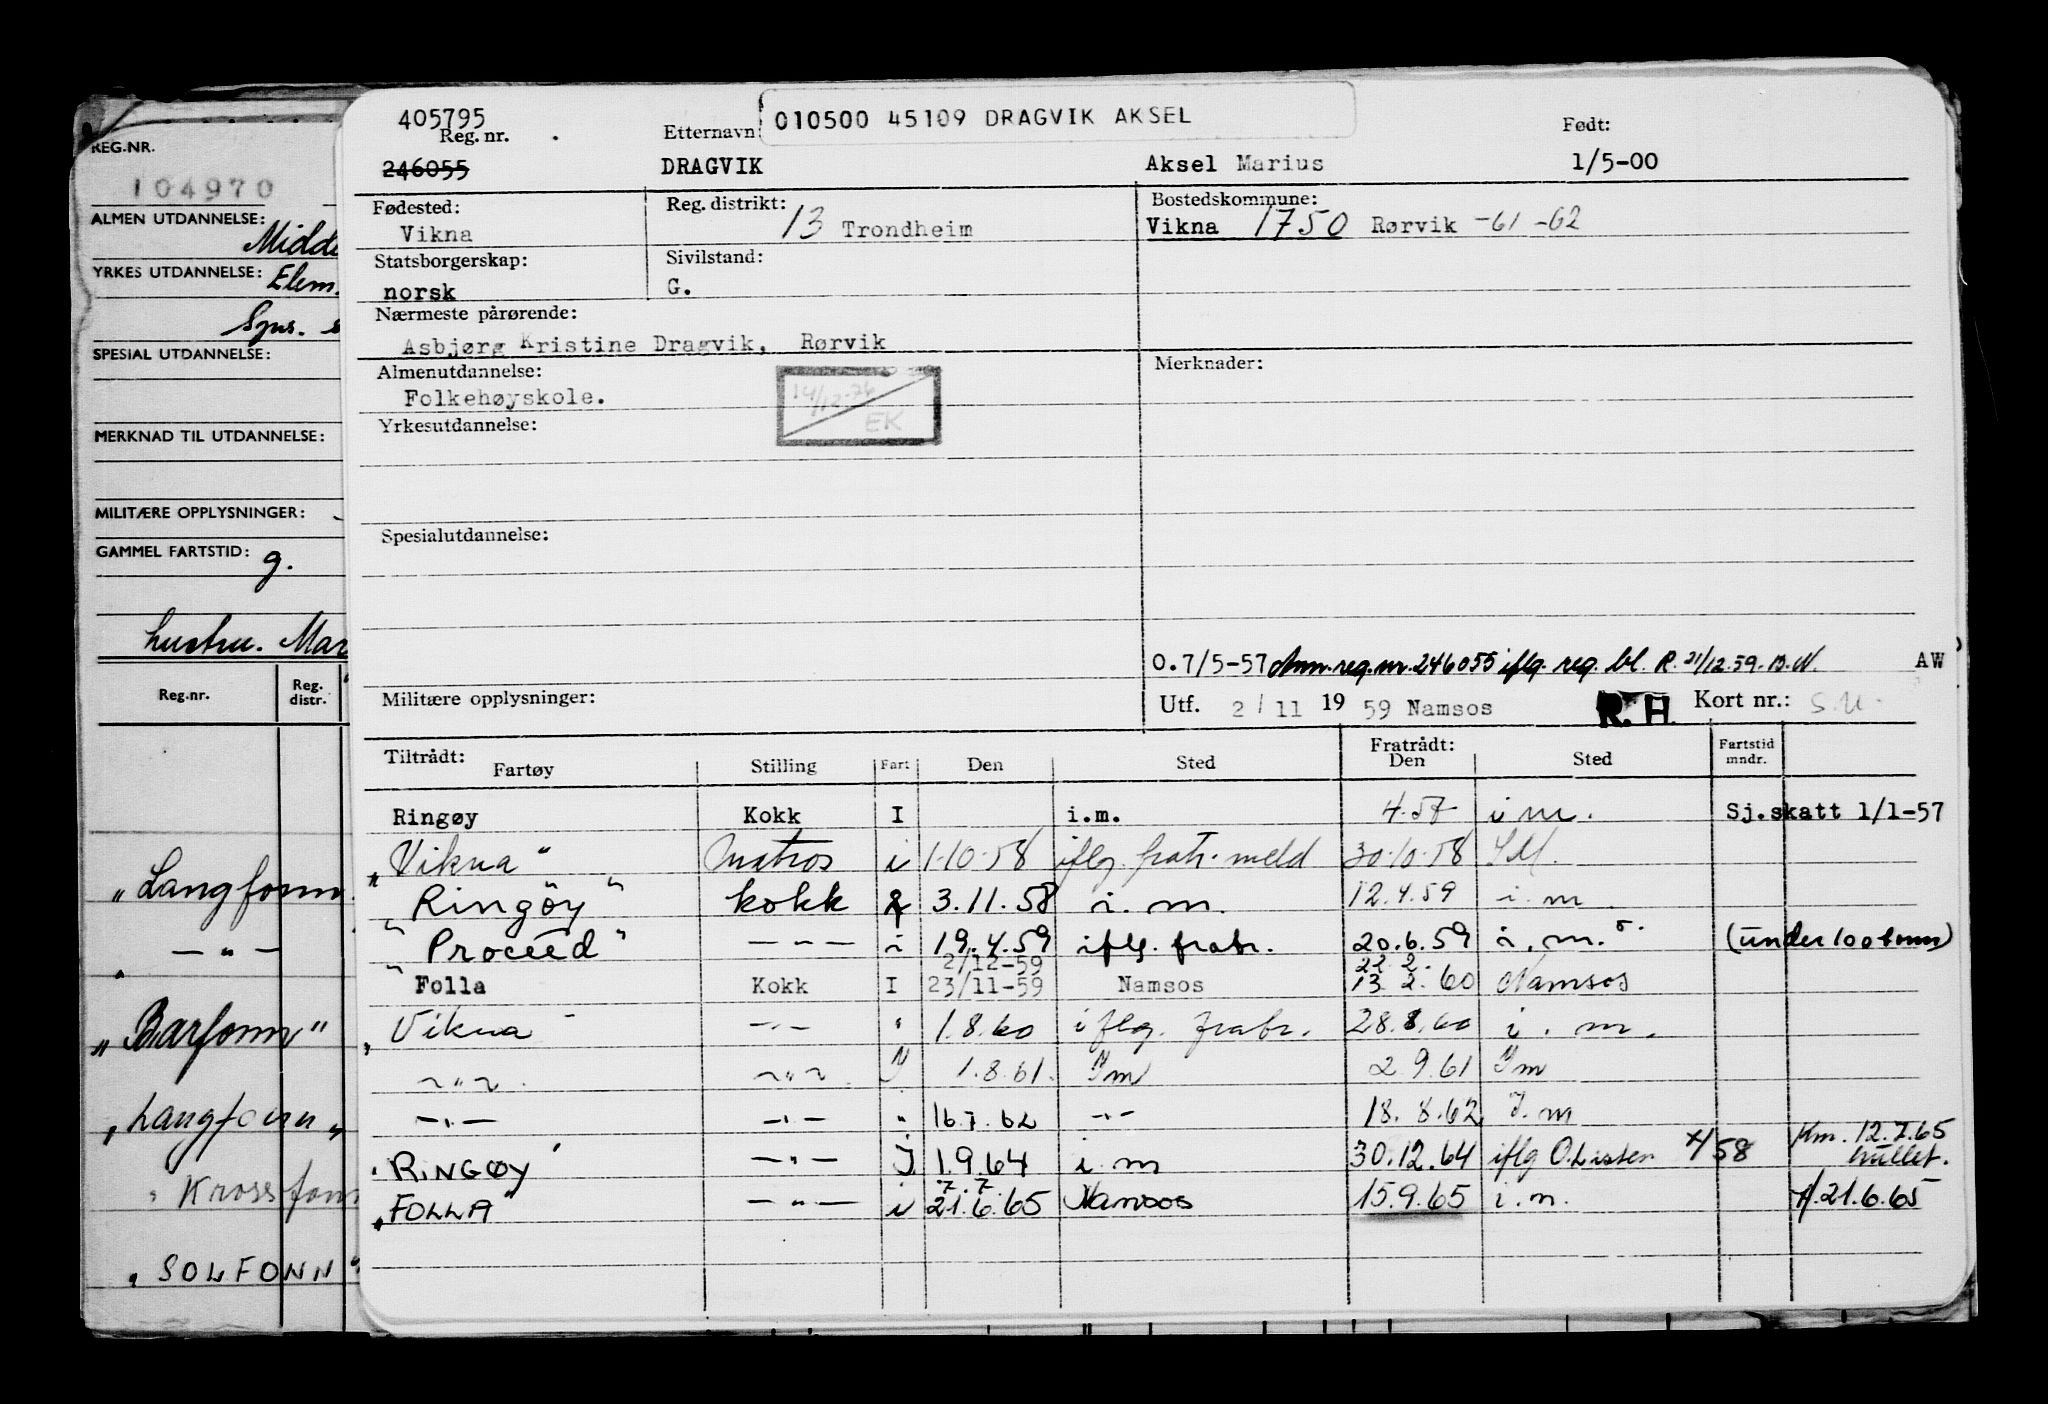 REG.NR.
104970
ALMEN UTDANNELSE:
YRKES UTDANNELSE: Elem.
SPESIAL UTDANNELSE:
MERKNAD TIL UTDANNELSE:
MILITÆRE OPPLYSNINGER: -
GAMMEL FARTSTID: g.
hustru. Mar
Reg.nr. Reg. distr.
"Langfonn
— " —
"Barfonn"
"Langfonn"
"Krossfonn
"SOLFONN"
405795
010500 45109 DRAGVIK AKSEL
Reg. nr. Etternavn: Født:
246055 DRAGVIK Aksel Marius 1/5-00
Fødested: Reg. distrikt: Bostedskommune:
Vikna 13 Trondheim Vikna 1750 Rørvik -61 -62
Statsborgerskap: Sivilstand:
norsk G.
Nærmeste pårørende:
Asbjørg Kristine Dragvik, Rørvik
Almenutdannelse: Merknader:
Folkehøyskole. 14/12-76 EK
Yrkesutdannelse:
Spesialutdannelse:
O.7/5-57 Ann. reg.nr. 246055 iflg. reg. bl. R. 21/12.59. B.N. AW
Militære opplysninger: Utf. 2/11 1959 Namsos R.H. Kort nr.: S.U.
Tiltrådt: Fratrådt:
Fartøy Stilling Fart Den Sted Den Sted Fartstid mndr.
Ringøy Kokk I i.m. 4.57 i m. Sj.skatt 1/1-57
"Vikna" Matros i 1.10.58 iflg. fratr. meld 30.10.58 I.M.
"Ringøy" kokk 3.11.58 i.m. 12.4.59 i.m
"Proceed" — " — i 19.4.59 iflg. fratr. 20.6.59 i.m. (under 100 tonn)
2/12-59 22 2.
"Folla Kokk I 23/11-59 Namsos 13 2.60 Namsos
"Vikna — " — " 1.8.60 iflg. fratr. 28.8.60 i.m.
— " — — " — I 1.8.61. Im 2.9.61 Im
— " — — " — " 16.7.62 — " — 18.8.62 I.m
Km. 12.7.65
"RINGØY" — " — I 1.9.64 i.m 30.12.64 iflg O.Listen x/58 hullet.
7. 7.
"FOLLA" — " — i 21.6.65 Namsos 15.9.65 i.m. 21.6.65